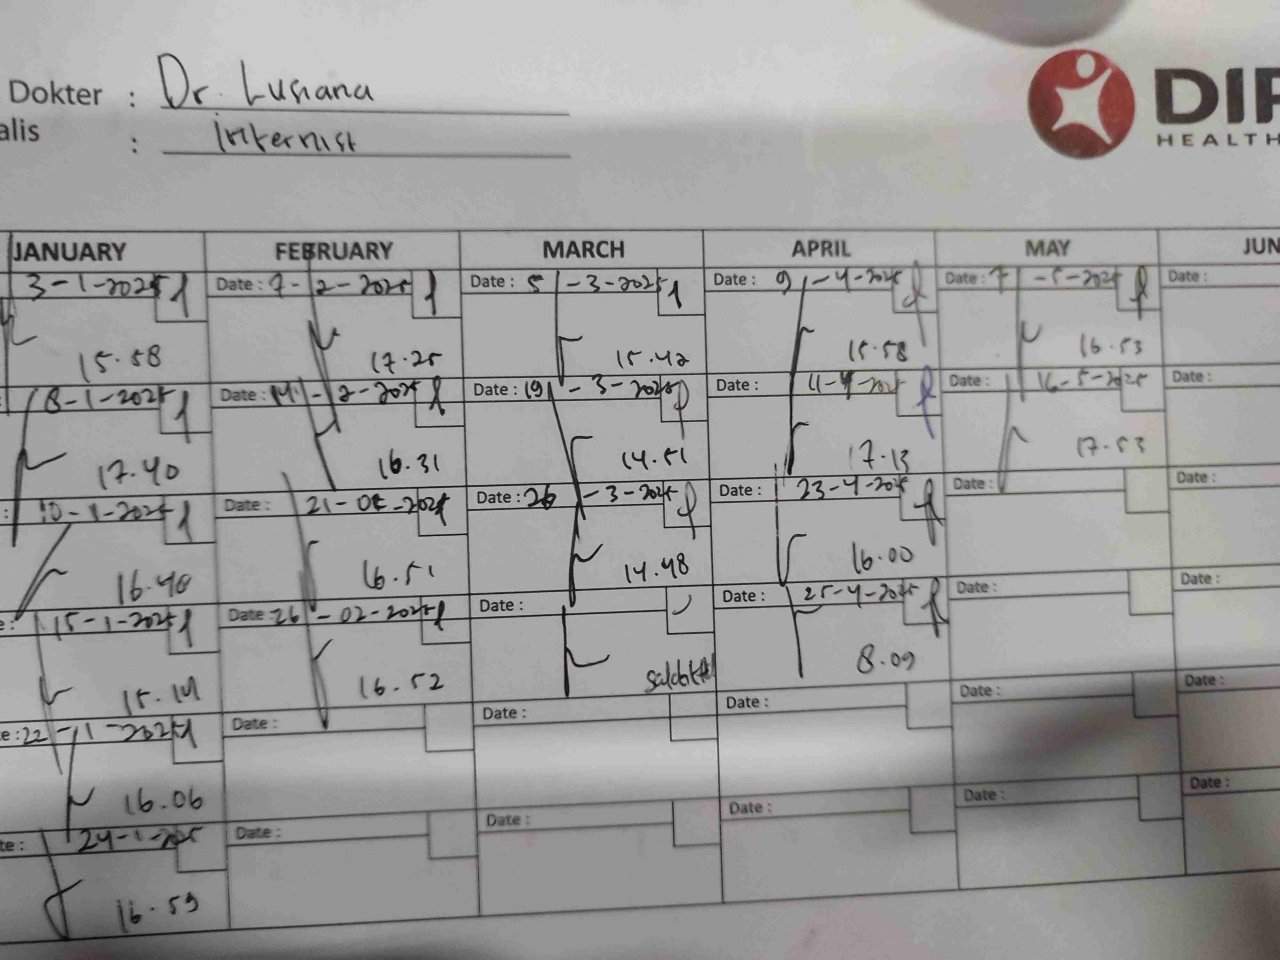 Dokter : Dr. Lusiana
alis : Internist
DIP
HEALTH
JANUARY FEBRUARY MARCH APRIL MAY JUN
3-1-2025 Date : 7-2-2025 Date : 5-3-2025 Date : 9-4-2025 Date : 7-5-2025 Date :
15.58 17.25 15.42 15.58 16.53
8-1-2025 Date : 14-2-2025 Date : 19-3-2025 Date : 11-4-2025 Date : 16-5-2025 Date :
17.40 16.31 14.51 17.13 17.53
: 10-1-2025 Date : 21-02-2025 Date : 26-3-2025 Date : 23-4-2025 Date : Date :
16.40 16.51 14.48 16.00
e: 15-1-2025 Date : 26-02-2025 Date : Date : 25-4-2025 Date : Date :
15.14 16.52 8.09
e: 22-1-2025 Date : Date : Date : Date : Date :
16.06
te : 24-1-2025 Date : Date : Date : Date : Date :
16.59